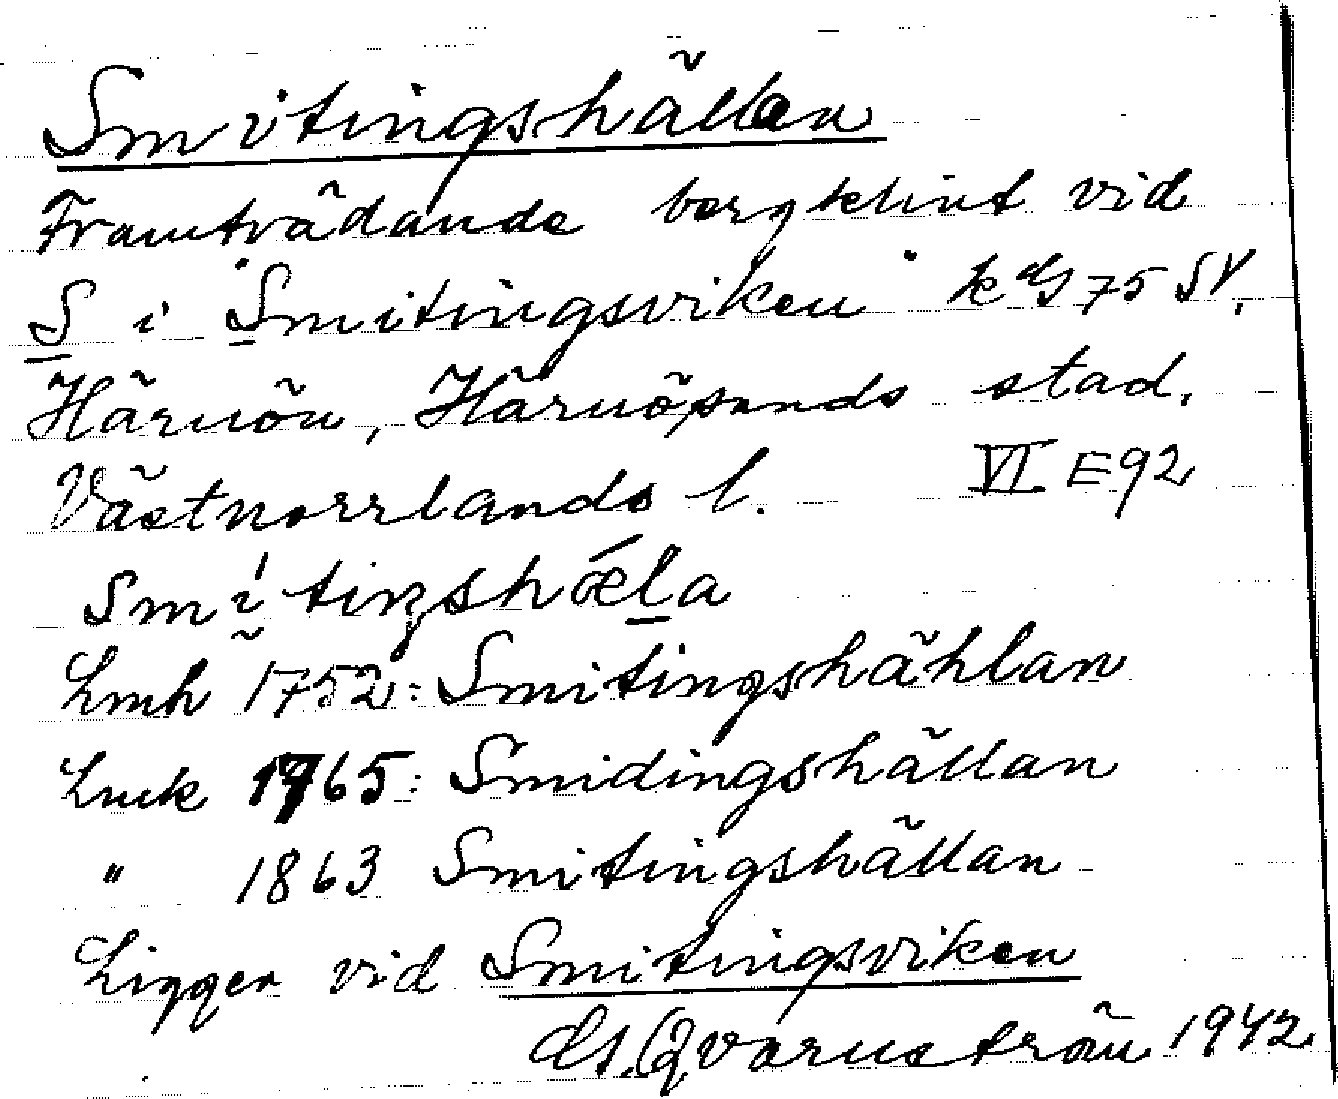 Smitingshällan
Framträdande bergklint vid
S i Smitingsviken k 75 SV.
Härnön, Härnösands stad.
Västnorrlands l. VI E92
Smítiŋshǽla
Lmh 1752: Smitingshählan
Lmk 1765: Smidingshällan
" 1863 Smitingshällan
Ligger vid Smitingsviken
Qvarnström 1942